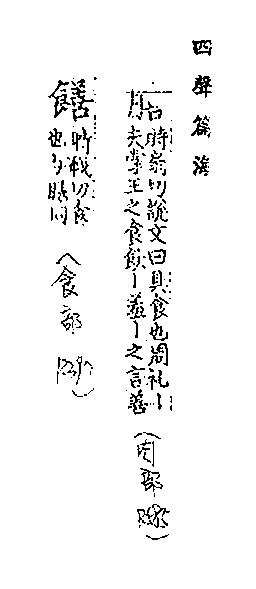 四聲篇海
膳時扇切說文曰具食也周礼丨夫掌王之食飲丨羞丨之言善（肉部）
饍時戰切食也与膳同（食部）